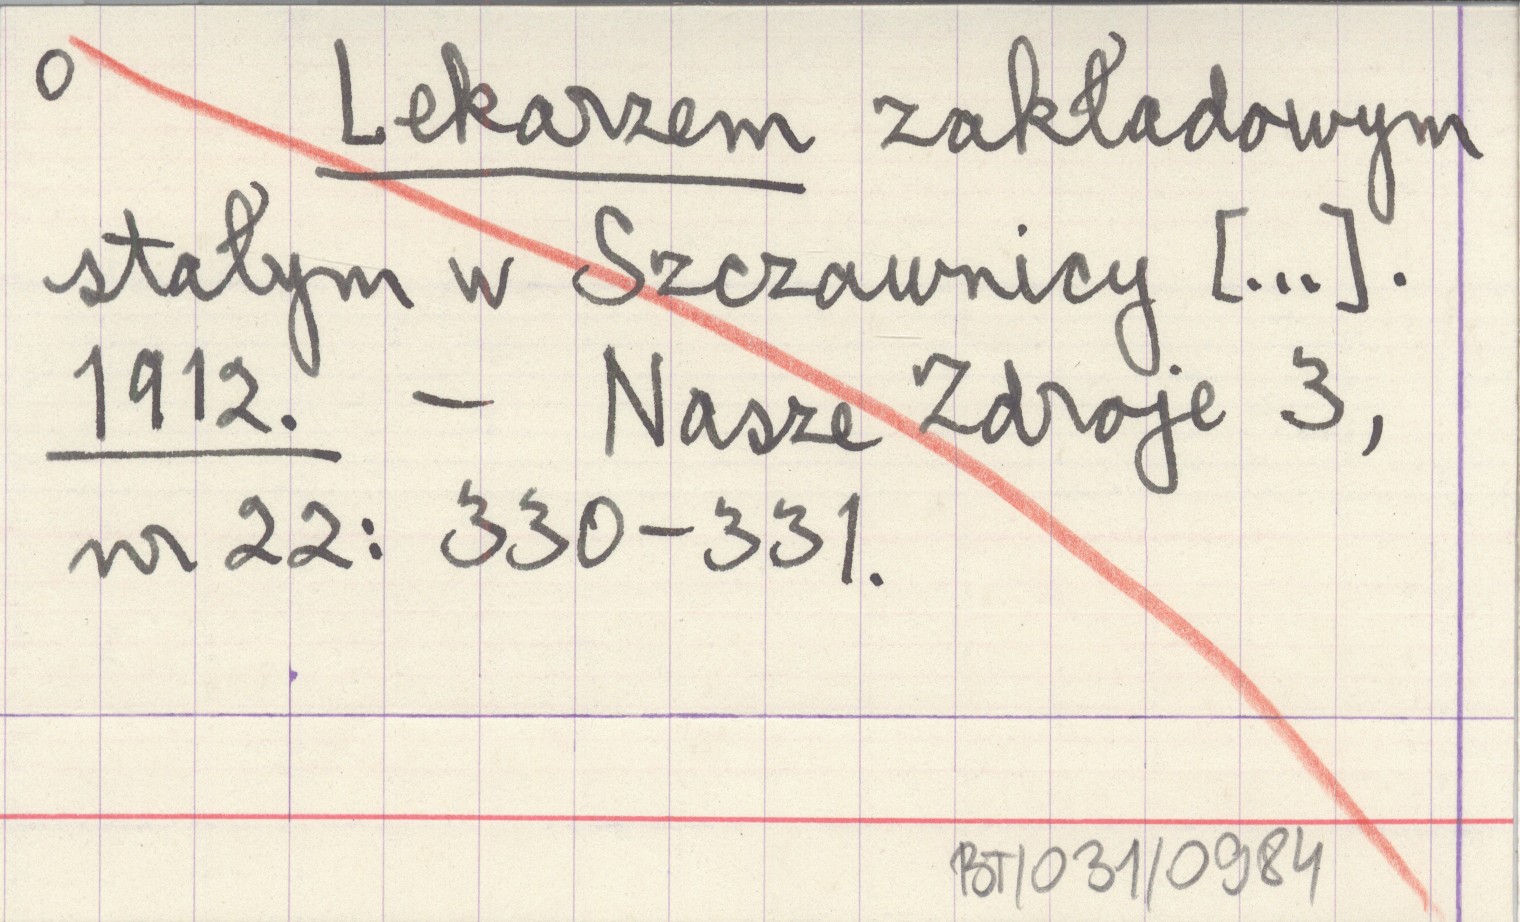 o Lekarzem zakładowym
stałym w Szczawnicy [...].
1912. - Nasze Zdroje 3,
nr 22: 330-331.
BT/031/0984